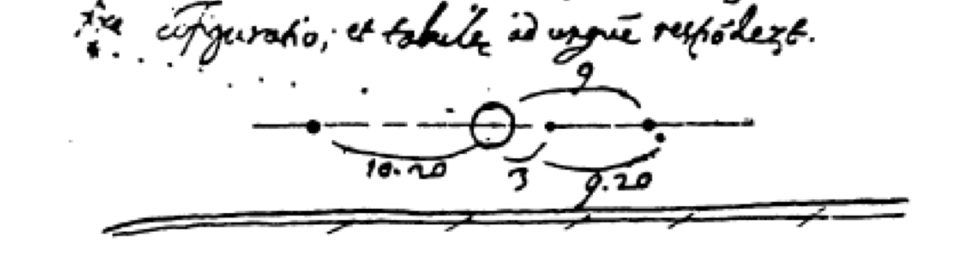 cōfiguratio, et tabulę ad unguē respōdent.
9
10.20 3 9.20